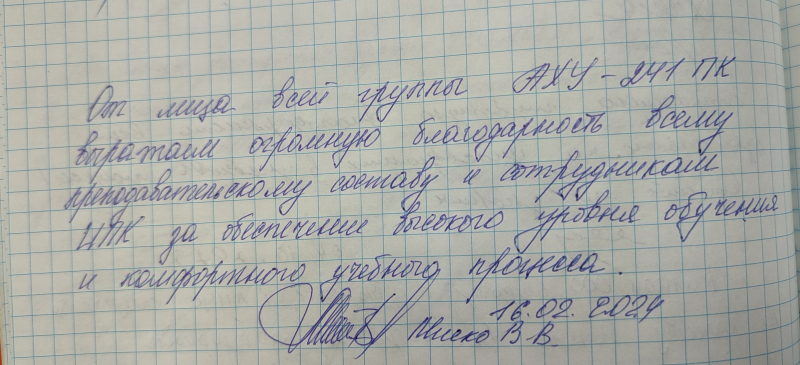 От лица всей группы АХУ-241 ПК
выражаем огромную благодарность всему
преподавательскому составу и сотрудникам
ИПК за обеспечение высокого уровня обучения
и комфортного учебного процесса.
16.02.2024
В.В.